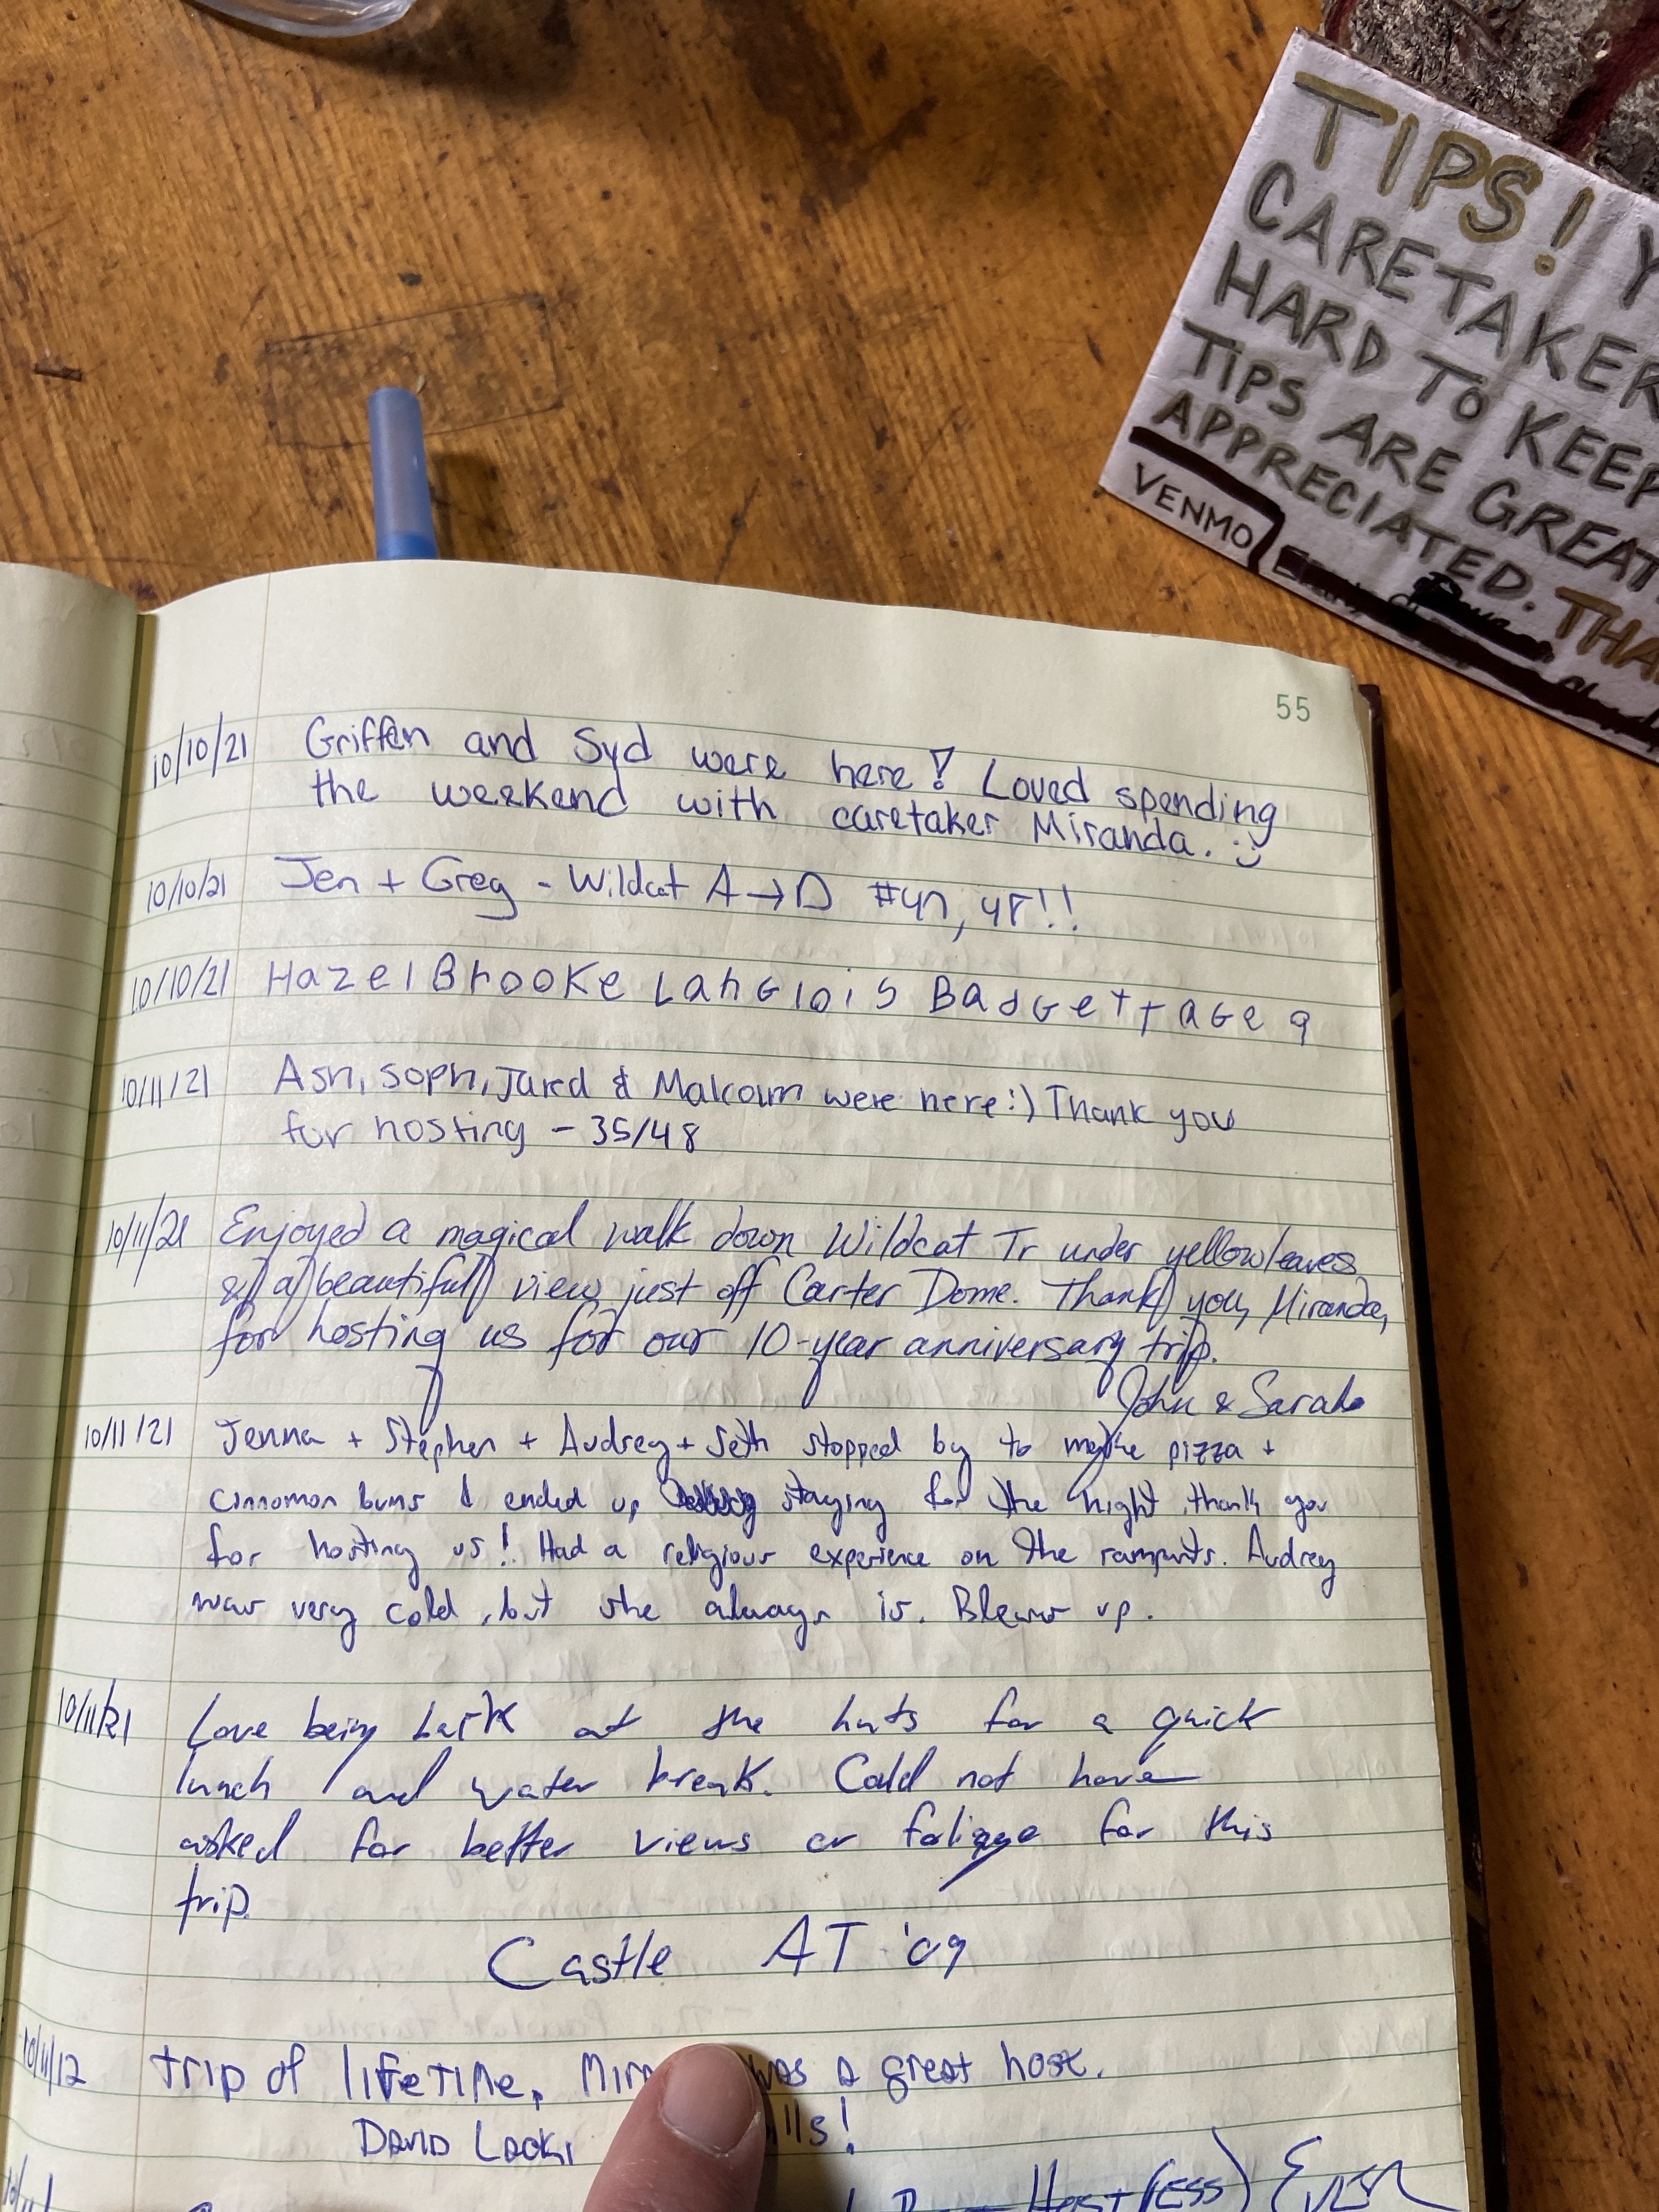 TIPS! Y
CARETAKER
HARD TO KEEP
TIPS ARE GREAT
APPRECIATED. THA
VENMO
55
10/10/21 Griffin and Syd were here! Loved spending
the weekend with caretaker Miranda. :)
10/10/21 Jen + Greg - Wildcat A→D #47, 48!!
10/10/21 Hazel Brooke Langlois Badgett age 9
10/11/21 Ash, Soph, Jared & Malcolm were here :) Thank you
for hosting - 35/48
10/11/21 Enjoyed a magical walk down Wildcat Tr under yellow leaves
& a beautiful view just off Carter Dome. Thank you, Miranda,
for hosting us for our 10-year anniversary trip.
John & Sarah
10/11/21 Jenna + Stephen + Audrey + Seth stopped by to make pizza +
cinnomon buns & ended up staying for the night. thank you
for hosting us! Had a religious experience on the ramparts. Audrey
was very cold, but she always is. Blears up.
10/11/21 Love being back at the huts for a quick
lunch and water break. Could not have
asked for better views or foliage for this
trip.
Castle AT '09
10/11/12 trip of lifetime, Mir was a great host.
David Lacki lls!
Host(ess) Ever